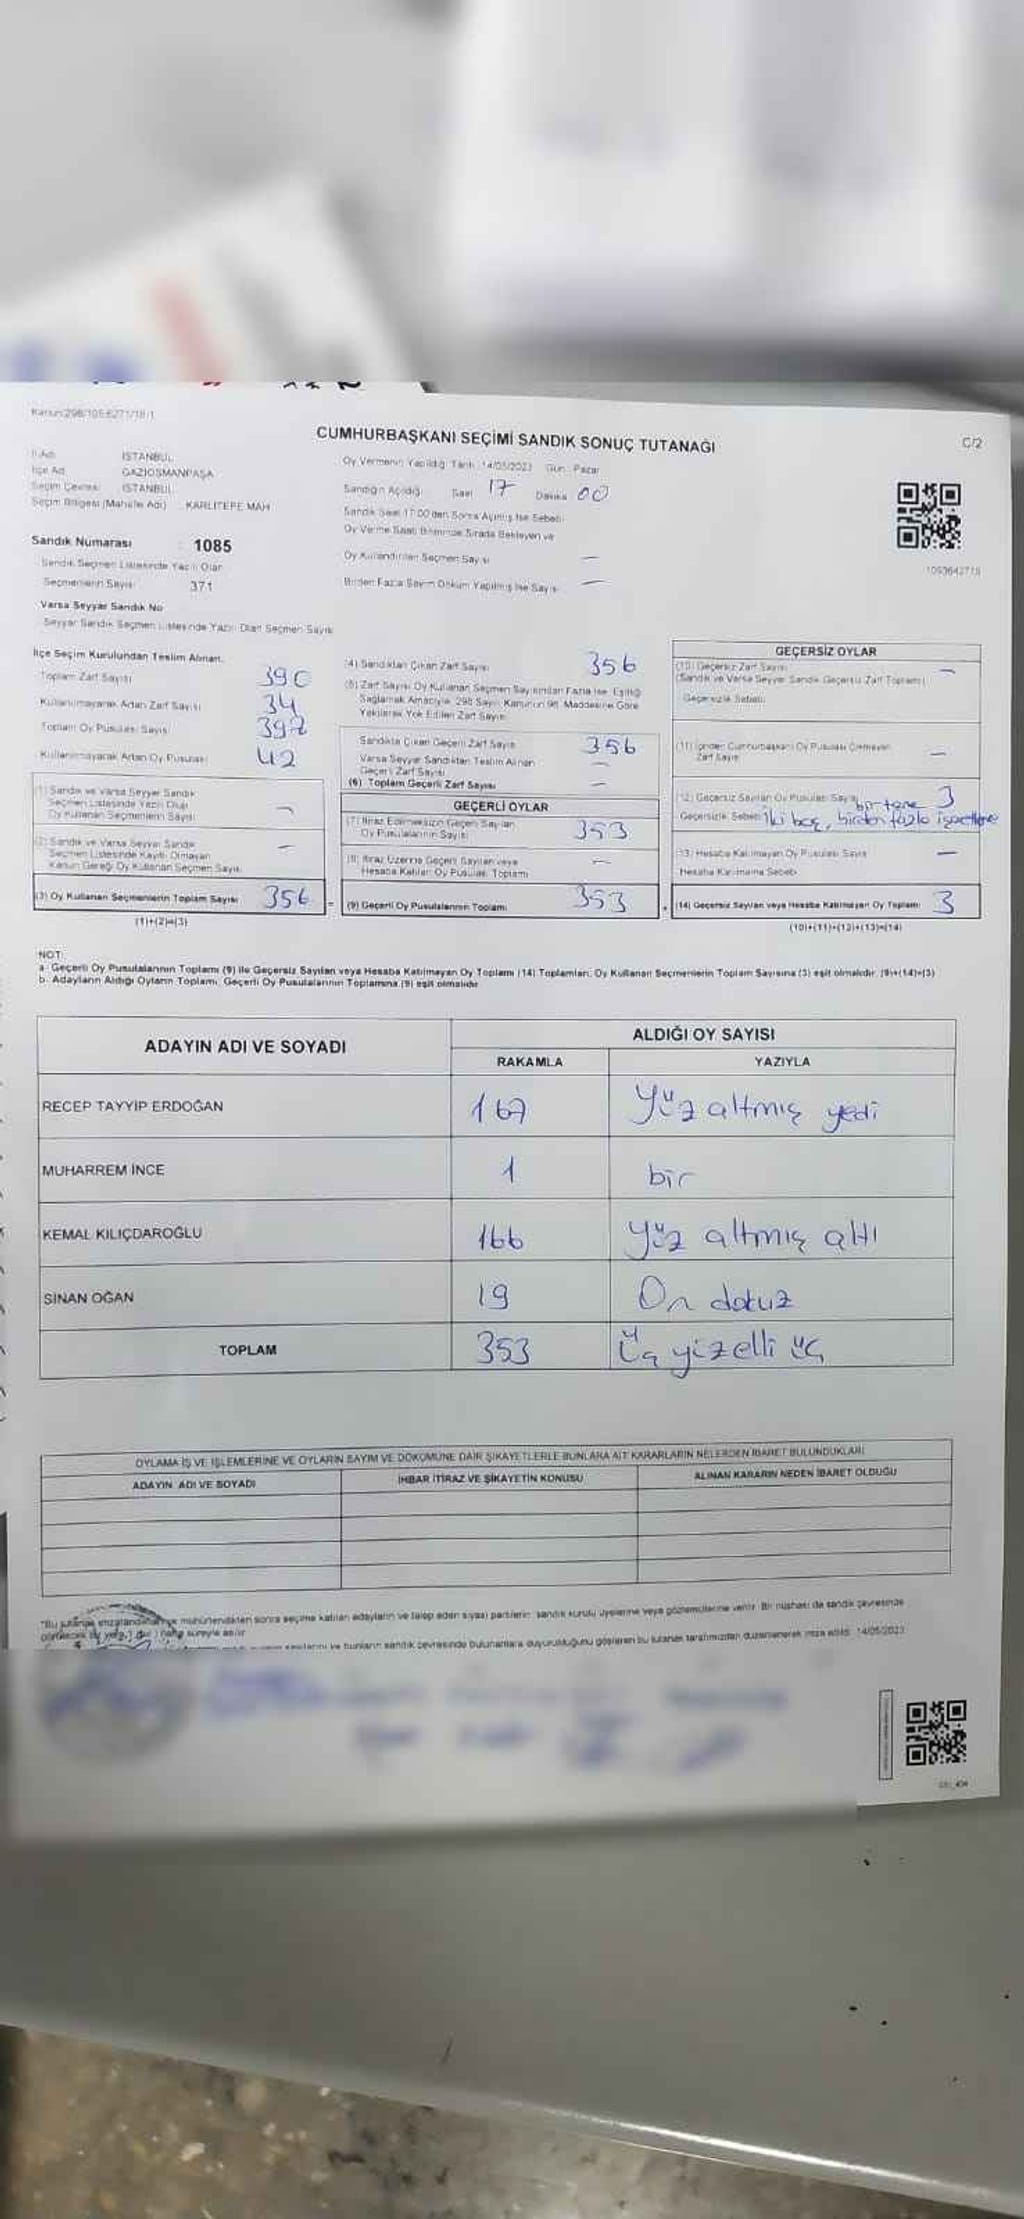 Kanun:298/105,6271/18/1
CUMHURBAŞKANI SEÇİMİ SANDIK SONUÇ TUTANAĞI
C/2
İl Adı İSTANBUL
İlçe Adı GAZİOSMANPAŞA
Seçim Çevresi İSTANBUL
Seçim Bölgesi (Mahalle Adı) KARLITEPE MAH
Sandık Numarası : 1085
Sandık Seçmen Listesinde Yazılı Olan
Seçmenlerin Sayısı 371
Varsa Seyyar Sandık No
Seyyar Sandık Seçmen Listesinde Yazılı Olan Seçmen Sayısı
Oy Vermenin Yapıldığı Tarih : 14/05/2023 Gün : Pazar
Sandığın Açıldığı Saat 17 Dakika 00
Sandık Saat 17:00'den Sonra Açılmış İse Sebebi
Oy Verme Saati Bitiminde Sırada Bekleyen ve
Oy Kullandırılan Seçmen Sayısı —
Birden Fazla Sayım Döküm Yapılmış İse Sayısı —
1093642718
İlçe Seçim Kurulundan Teslim Alınan:
Toplam Zarf Sayısı 390
Kullanılmayarak Artan Zarf Sayısı 34
Toplam Oy Pusulası Sayısı 398
Kullanılmayarak Artan Oy Pusulası 42
(1) Sandık ve Varsa Seyyar Sandık
Seçmen Listesinde Yazılı Olup
Oy Kullanan Seçmenlerin Sayısı —
(2) Sandık ve Varsa Seyyar Sandık
Seçmen Listesinde Kayıtlı Olmayan
Kanun Gereği Oy Kullanan Seçmen Sayısı —
(3) Oy Kullanan Seçmenlerin Toplam Sayısı 356
(1)+(2)=(3)
(4) Sandıktan Çıkan Zarf Sayısı 356
(5) Zarf Sayısı Oy Kullanan Seçmen Sayısından Fazla İse, Eşitliği
Sağlamak Amacıyla, 298 Sayılı Kanunun 98. Maddesine Göre
Yakılarak Yok Edilen Zarf Sayısı
Sandıkta Çıkan Geçerli Zarf Sayısı 356
Varsa Seyyar Sandıktan Teslim Alınan
Geçerli Zarf Sayısı —
(6) Toplam Geçerli Zarf Sayısı —
GEÇERLİ OYLAR
(7) İtiraz Edilmeksizin Geçerli Sayılan
Oy Pusulalarının Sayısı 353
(8) İtiraz Üzerine Geçerli Sayılan veya
Hesaba Katılan Oy Pusulası Toplamı —
(9) Geçerli Oy Pusulalarının Toplamı 353
GEÇERSİZ OYLAR
(10) Geçersiz Zarf Sayısı —
(Sandık ve Varsa Seyyar Sandık Geçersiz Zarf Toplamı)
Geçersizlik Sebebi
(11) İçinden Cumhurbaşkanı Oy Pusulası Çıkmayan
Zarf Sayısı —
(12) Geçersiz Sayılan Oy Pusulası Sayısı bir tane 3
Geçersizlik Sebebi iki boş, birden fazla işaretleme
(13) Hesaba Katılmayan Oy Pusulası Sayısı —
Hesaba Katılmama Sebebi
(14) Geçersiz Sayılan veya Hesaba Katılmayan Oy Toplamı 3
(10)+(11)+(12)+(13)=(14)
NOT:
a- Geçerli Oy Pusulalarının Toplamı (9) ile Geçersiz Sayılan veya Hesaba Katılmayan Oy Toplamı (14) Toplamları, Oy Kullanan Seçmenlerin Toplam Sayısına (3) eşit olmalıdır. (9)+(14)=(3)
b- Adayların Aldığı Oyların Toplamı, Geçerli Oy Pusulalarının Toplamına (9) eşit olmalıdır
ADAYIN ADI VE SOYADI
ALDIĞI OY SAYISI
RAKAMLA YAZIYLA
RECEP TAYYİP ERDOĞAN 167 Yüz altmış yedi
MUHARREM İNCE 1 bir
KEMAL KILIÇDAROĞLU 166 Yüz altmış altı
SİNAN OĞAN 19 On dokuz
TOPLAM 353 Üç yizelli üç
OYLAMA İŞ VE İŞLEMLERİNE VE OYLARIN SAYIM VE DÖKÜMÜNE DAİR ŞİKAYETLERLE BUNLARA AİT KARARLARIN NELERDEN İBARET BULUNDUKLARI
ADAYIN ADI VE SOYADI İHBAR İTİRAZ VE ŞİKAYETİN KONUSU ALINAN KARARIN NEDEN İBARET OLDUĞU
mühürlendikten sonra seçime katılan adayların ve talep eden siyasi partilerin sandık kurulu üyelerine veya gözlemcilerine verilir. Bir nüshası da sandık çevresinde
süreyle asılır
ve bunların sandık çevresinde bulunanlara duyurulduğunu gösteren bu tutanak tarafımızdan düzenlenerek imza edildi. 14/05/2023